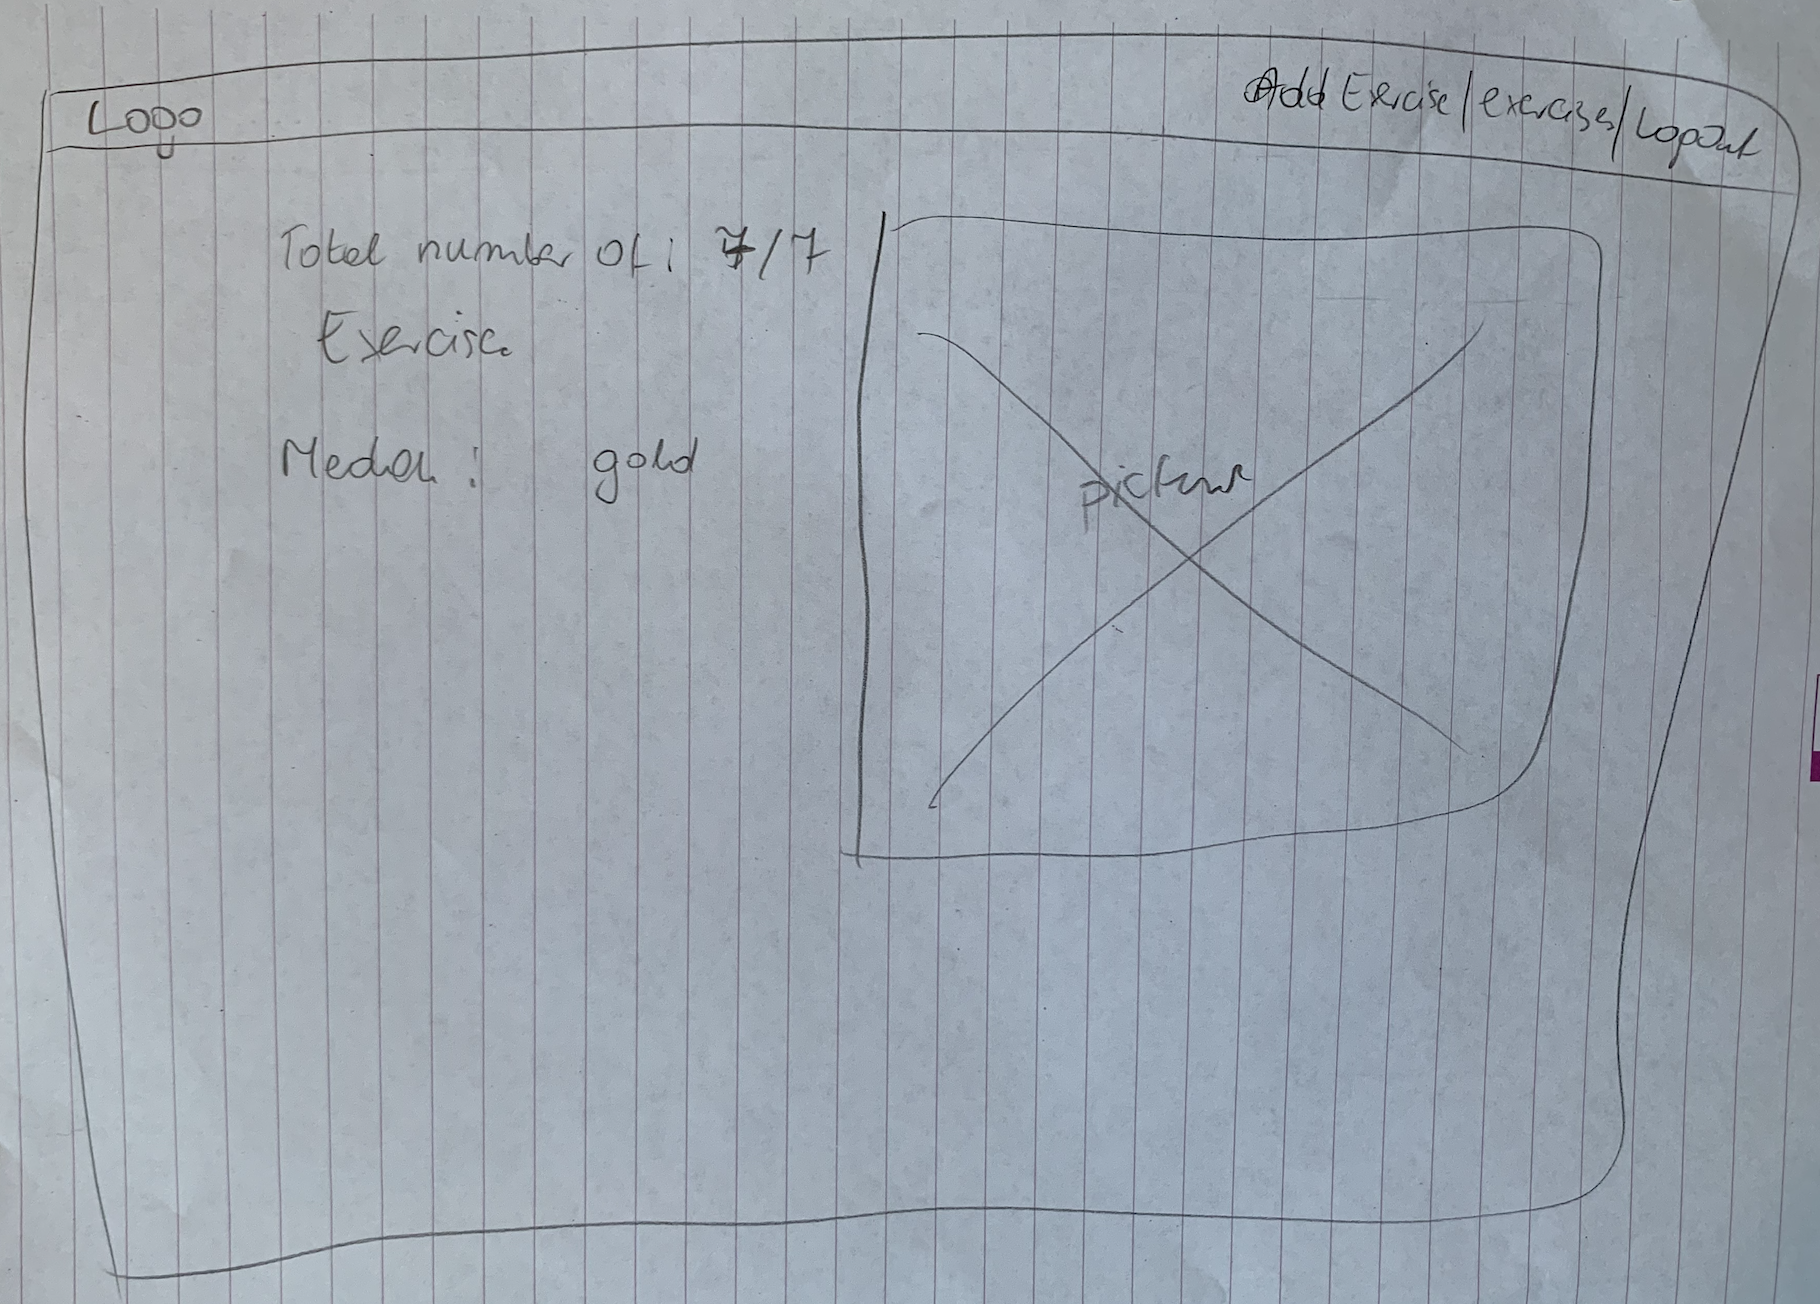 Logo
Add Exercise/exercises/Logout
Total number of: 7/7
Exercise
Medal: gold
picture